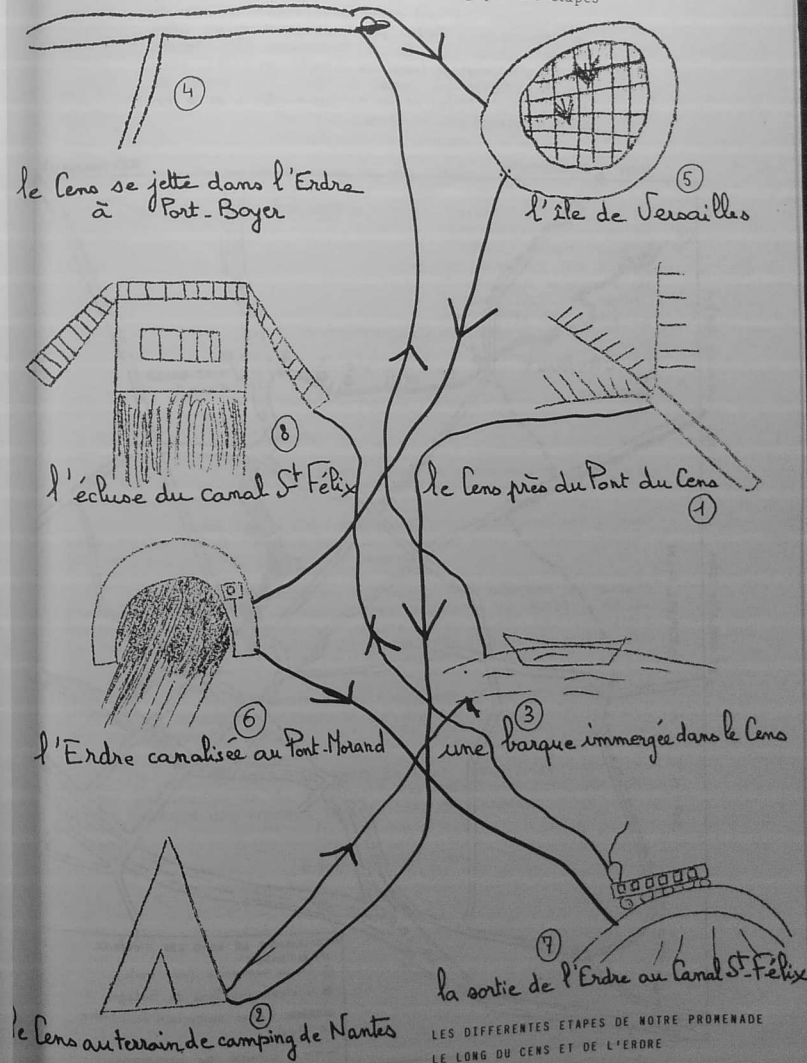 étapes
4
le Cens se jette dans l'Erdre
à Port-Boyer
5
l'île de Versailles
8
l'écluse du canal St Félix
le Cens près du Pont du Cens
1
6
l'Erdre canalisée au Pont-Morand
3
une barque immergée dans le Cens
7
la sortie de l'Erdre au Canal St-Félix
2
le Cens au terrain de camping de Nantes
LES DIFFERENTES ETAPES DE NOTRE PROMENADE
LE LONG DU CENS ET DE L'ERDRE